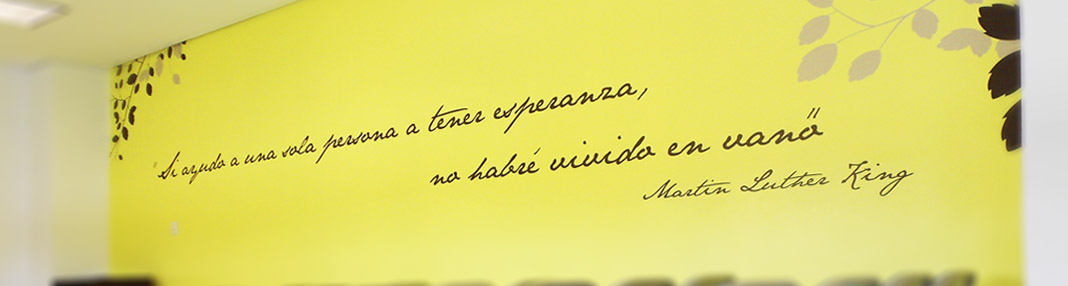 "Si ayudo a una sola persona a tener esperanza,
no habré vivido en vano"
Martin Luther King